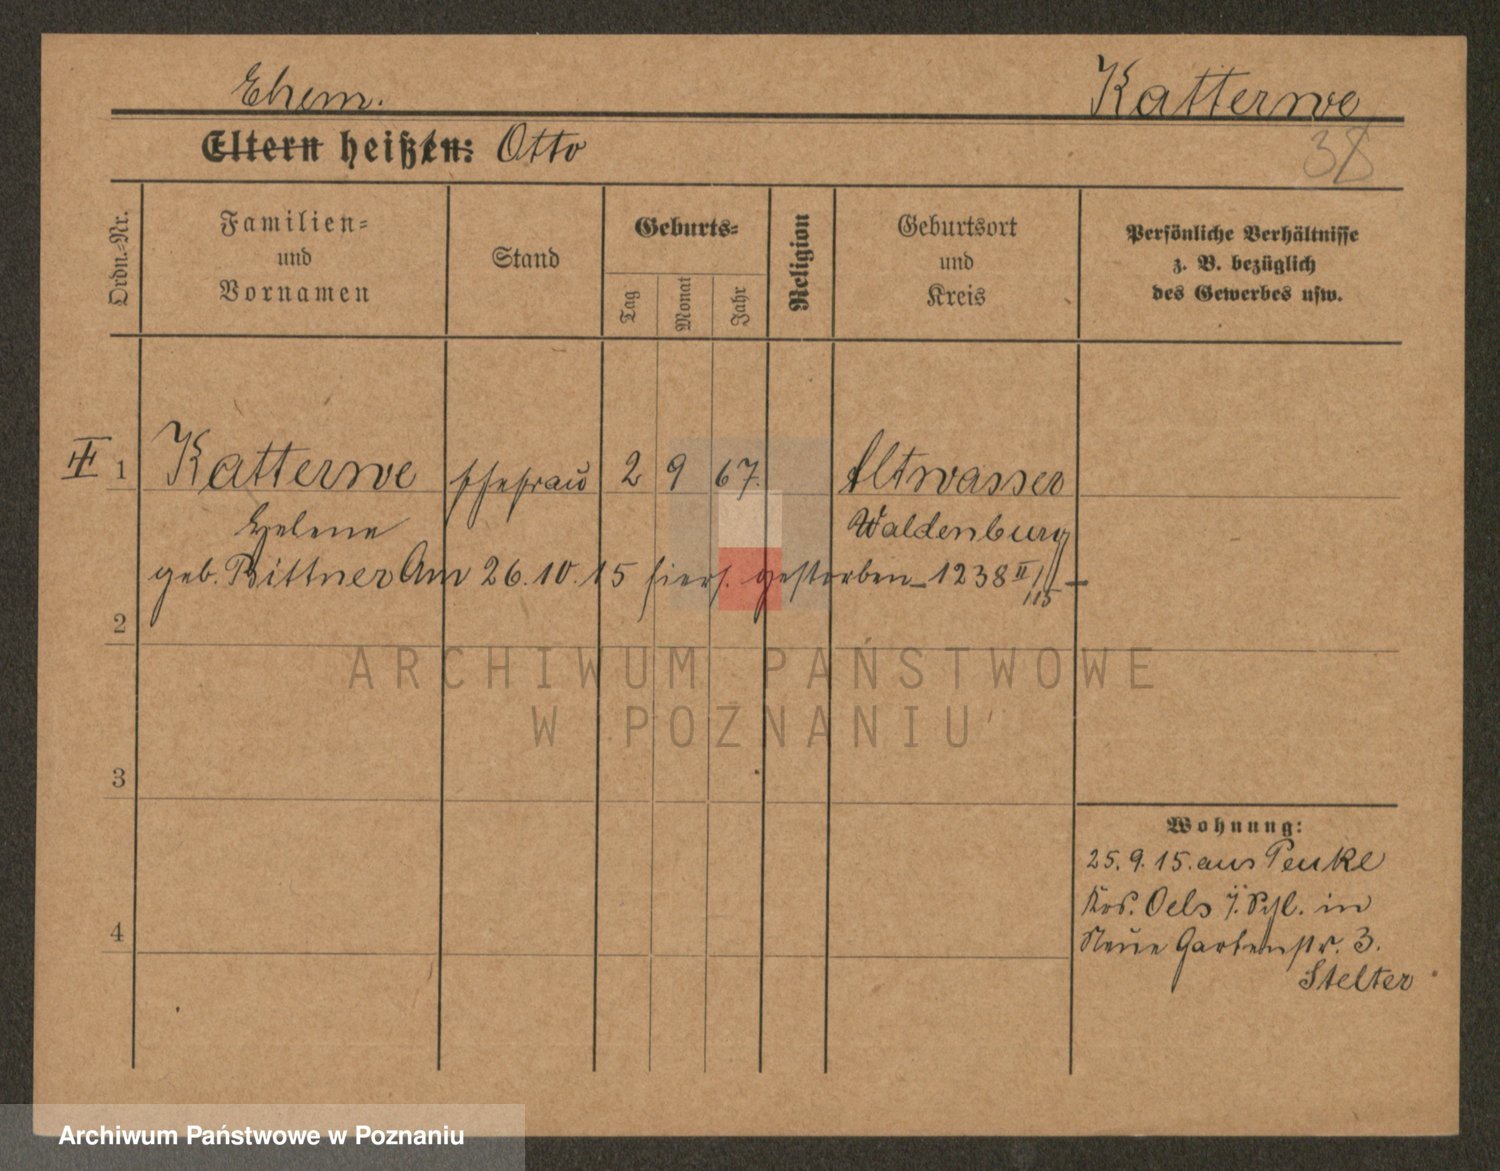 Ehem. Katterwe
Eltern heißen: Otto
38
Ordn.-Nr.
Familien-
und
Vornamen
Stand
Geburts-
Tag
Monat
Jahr
Religion
Geburtsort
und
Kreis
Persönliche Verhältnisse
z. B. bezüglich
des Gewerbes usw.
II 1 Katterwe Ehefrau 2 9 67. Altwasser
Helene Waldenburg
geb. Bittner Am 26.10.15 hiers. gestorben 1238 II/
115
2
3
4
Wohnung:
25.9.15. aus Peuke
Krs. Oels i. Schl. in
Neue Gartenstr. 3.
Stelter
ARCHIWUM PAŃSTWOWE
W POZNANIU
Archiwum Państwowe w Poznaniu